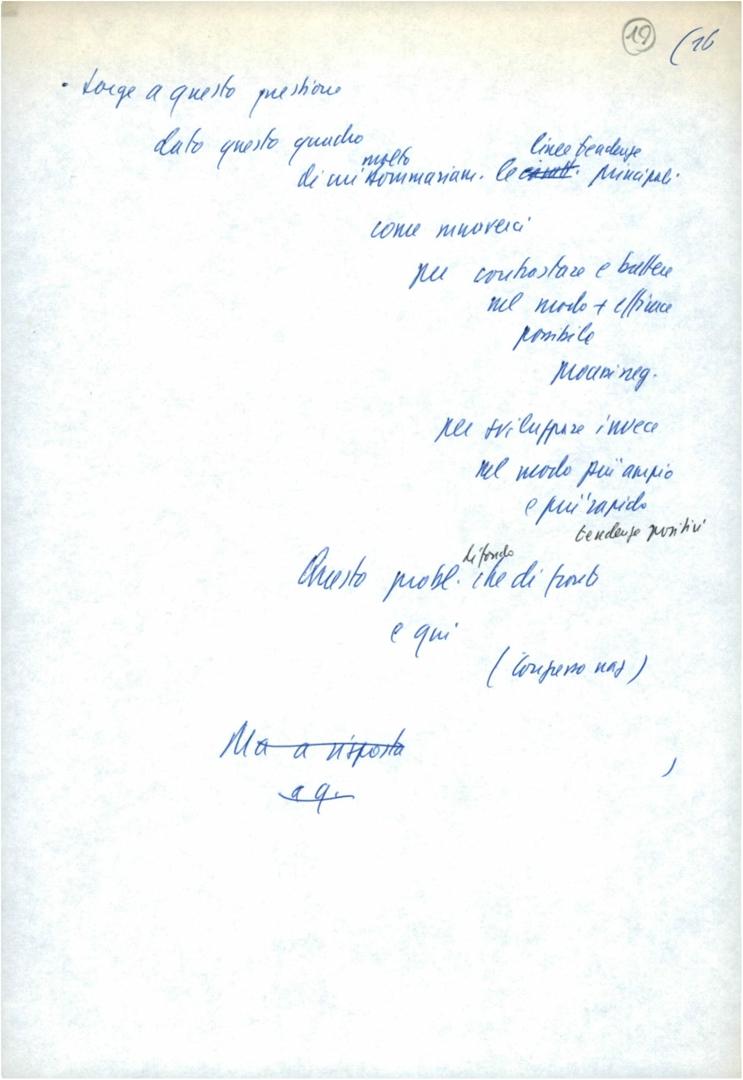 19 (26
• Sorge a questo questione
dato questo quadro
molto linee tendenze
di cui sommariam. le caratt. principali
come muoverci
per contrastare e battere
nel modo + efficace
possibile
neg.
per sviluppare invece
nel modo più ampio
e più rapido
tendenze positivi
di fondo
Questo probl. che di fronte
e qui
(Congresso naz)
Ma a risposta
a q.